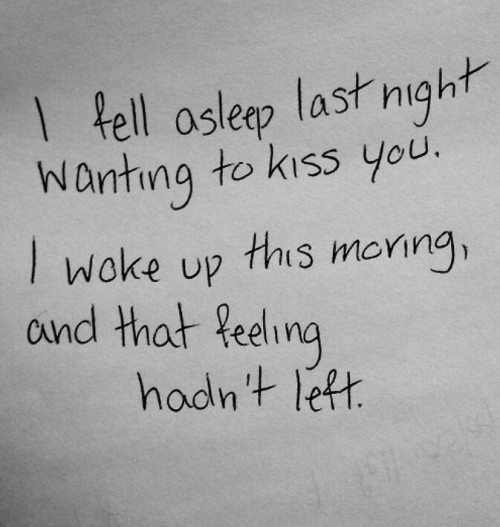 I fell asleep last night
Wanting to kiss you.
I woke up this moring,
and that feeling
hadn't left.